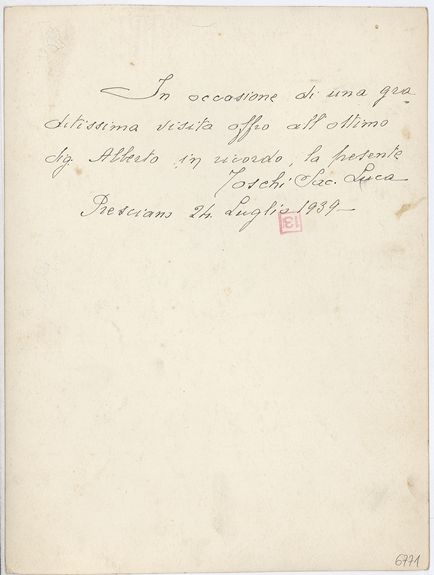 In occasione di una gra
ditissima visita offro all'ottimo
Sig. Alberto, in ricordo, la presente
Toschi Sac. Luca
Presciano 24 Luglio 1939-
13
6771